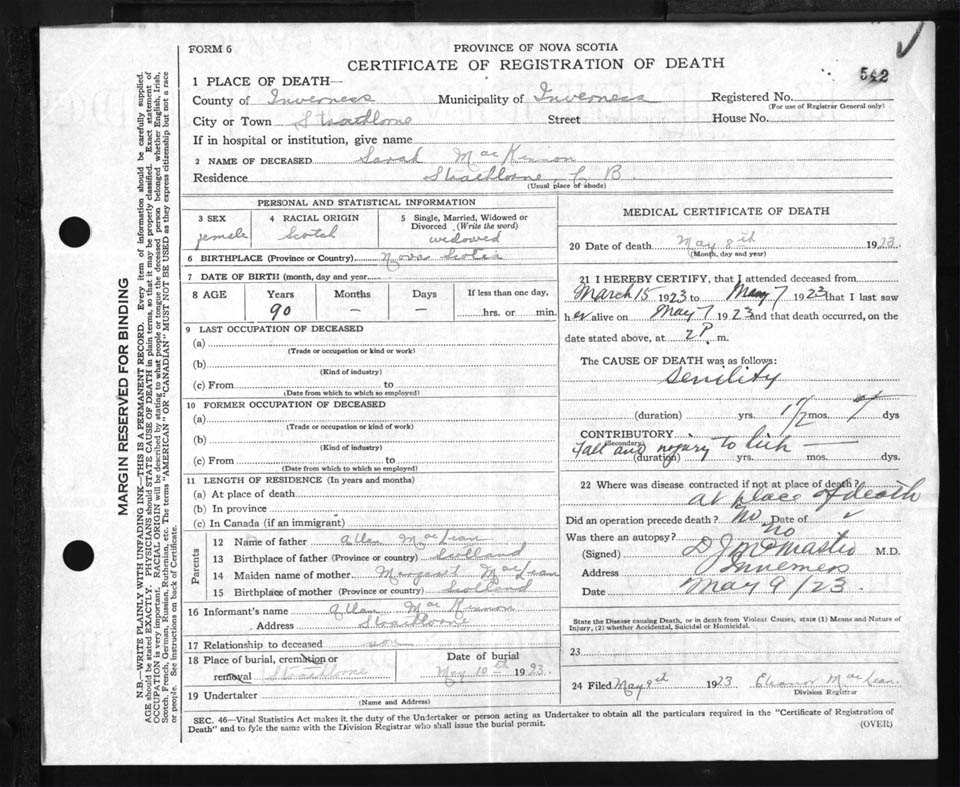 FORM 6
PROVINCE OF NOVA SCOTIA
CERTIFICATE OF REGISTRATION OF DEATH
542
1 PLACE OF DEATH—
County of Inverness Municipality of Inverness Registered No.
(For use of Registrar General only)
City or Town Strathlorne Street House No.
If in hospital or institution, give name
2 NAME OF DECEASED Sarah MacKinnon
Residence Strathlorne, C. B.
(Usual place of abode)
PERSONAL AND STATISTICAL INFORMATION
3 SEX 4 RACIAL ORIGIN 5 Single, Married, Widowed or
Divorced (Write the word)
female Scotch widowed
6 BIRTHPLACE (Province or Country) Nova Scotia
7 DATE OF BIRTH (month, day and year)
8 AGE Years Months Days If less than one day,
90 — — hrs. or min.
9 LAST OCCUPATION OF DECEASED
(a)
(Trade or occupation or kind or work)
(b)
(Kind of industry)
(c) From to
(Date from which to which so employed)
10 FORMER OCCUPATION OF DECEASED
(a)
(Trade or occupation or kind of work)
(b)
(Kind of industry)
(c) From to
(Date from which to which so employed)
11 LENGTH OF RESIDENCE (In years and months)
(a) At place of death
(b) In province
(c) In Canada (if an immigrant)
Parents
12 Name of father Allan MacLean
13 Birthplace of father (Province or country) Scotland
14 Maiden name of mother Margaret MacLean
15 Birthplace of mother (Province or country) Scotland
16 Informant's name Allan MacKinnon
Address Strathlorne
17 Relationship to deceased son
18 Place of burial, cremation or
removal Strathlorne
Date of burial
May 10th 1923
19 Undertaker
(Name and Address)
MEDICAL CERTIFICATE OF DEATH
20 Date of death May 8th 1923
(Month, day and year)
21 I HEREBY CERTIFY, that I attended deceased from
March 15 1923 to May 7 1923 that I last saw
her alive on May 7 1923 and that death occurred, on the
date stated above, at 2 P. m.
The CAUSE OF DEATH was as follows:
Senility
(duration) yrs. 1 1/2 mos. days
CONTRIBUTORY
(Secondary)
Fall and injury to —
(duration) yrs. mos. dys.
22 Where was disease contracted if not at place of death?
at place of death
Did an operation precede death? No Date of
Was there an autopsy? no
(Signed) D J McMaster M.D.
Address Inverness
Date May 9/23
State the Disease causing Death, or in death from Violent Causes, state (1) Means and Nature of
Injury, (2) whether Accidental, Suicidal or Homicidal.
23
24 Filed May 9th 1923 Eleanor MacLean
Division Registrar
SEC. 46—Vital Statistics Act makes it the duty of the Undertaker or person acting as Undertaker to obtain all the particulars required in the "Certificate of Registration of
Death" and to fyle the same with the Division Registrar who shall issue the burial permit.
(OVER)
MARGIN RESERVED FOR BINDING
N.B.—WRITE PLAINLY WITH UNFADING INK—THIS IS A PERMANENT RECORD. Every item of information should be carefully supplied.
AGE should be stated EXACTLY. PHYSICIANS should STATE CAUSE OF DEATH in plain terms, so that it may be properly classified. Exact statement of
OCCUPATION is very important. RACIAL ORIGIN will be described by stating to what people or tongue the deceased person belonged whether English, Irish,
Scotch, French, German, Russian, Ruthenian, etc. The terms "AMERICAN" OR "CANADIAN" MUST NOT BE USED as they express citizenship but not a race
or people. See instructions on back of Certificate.